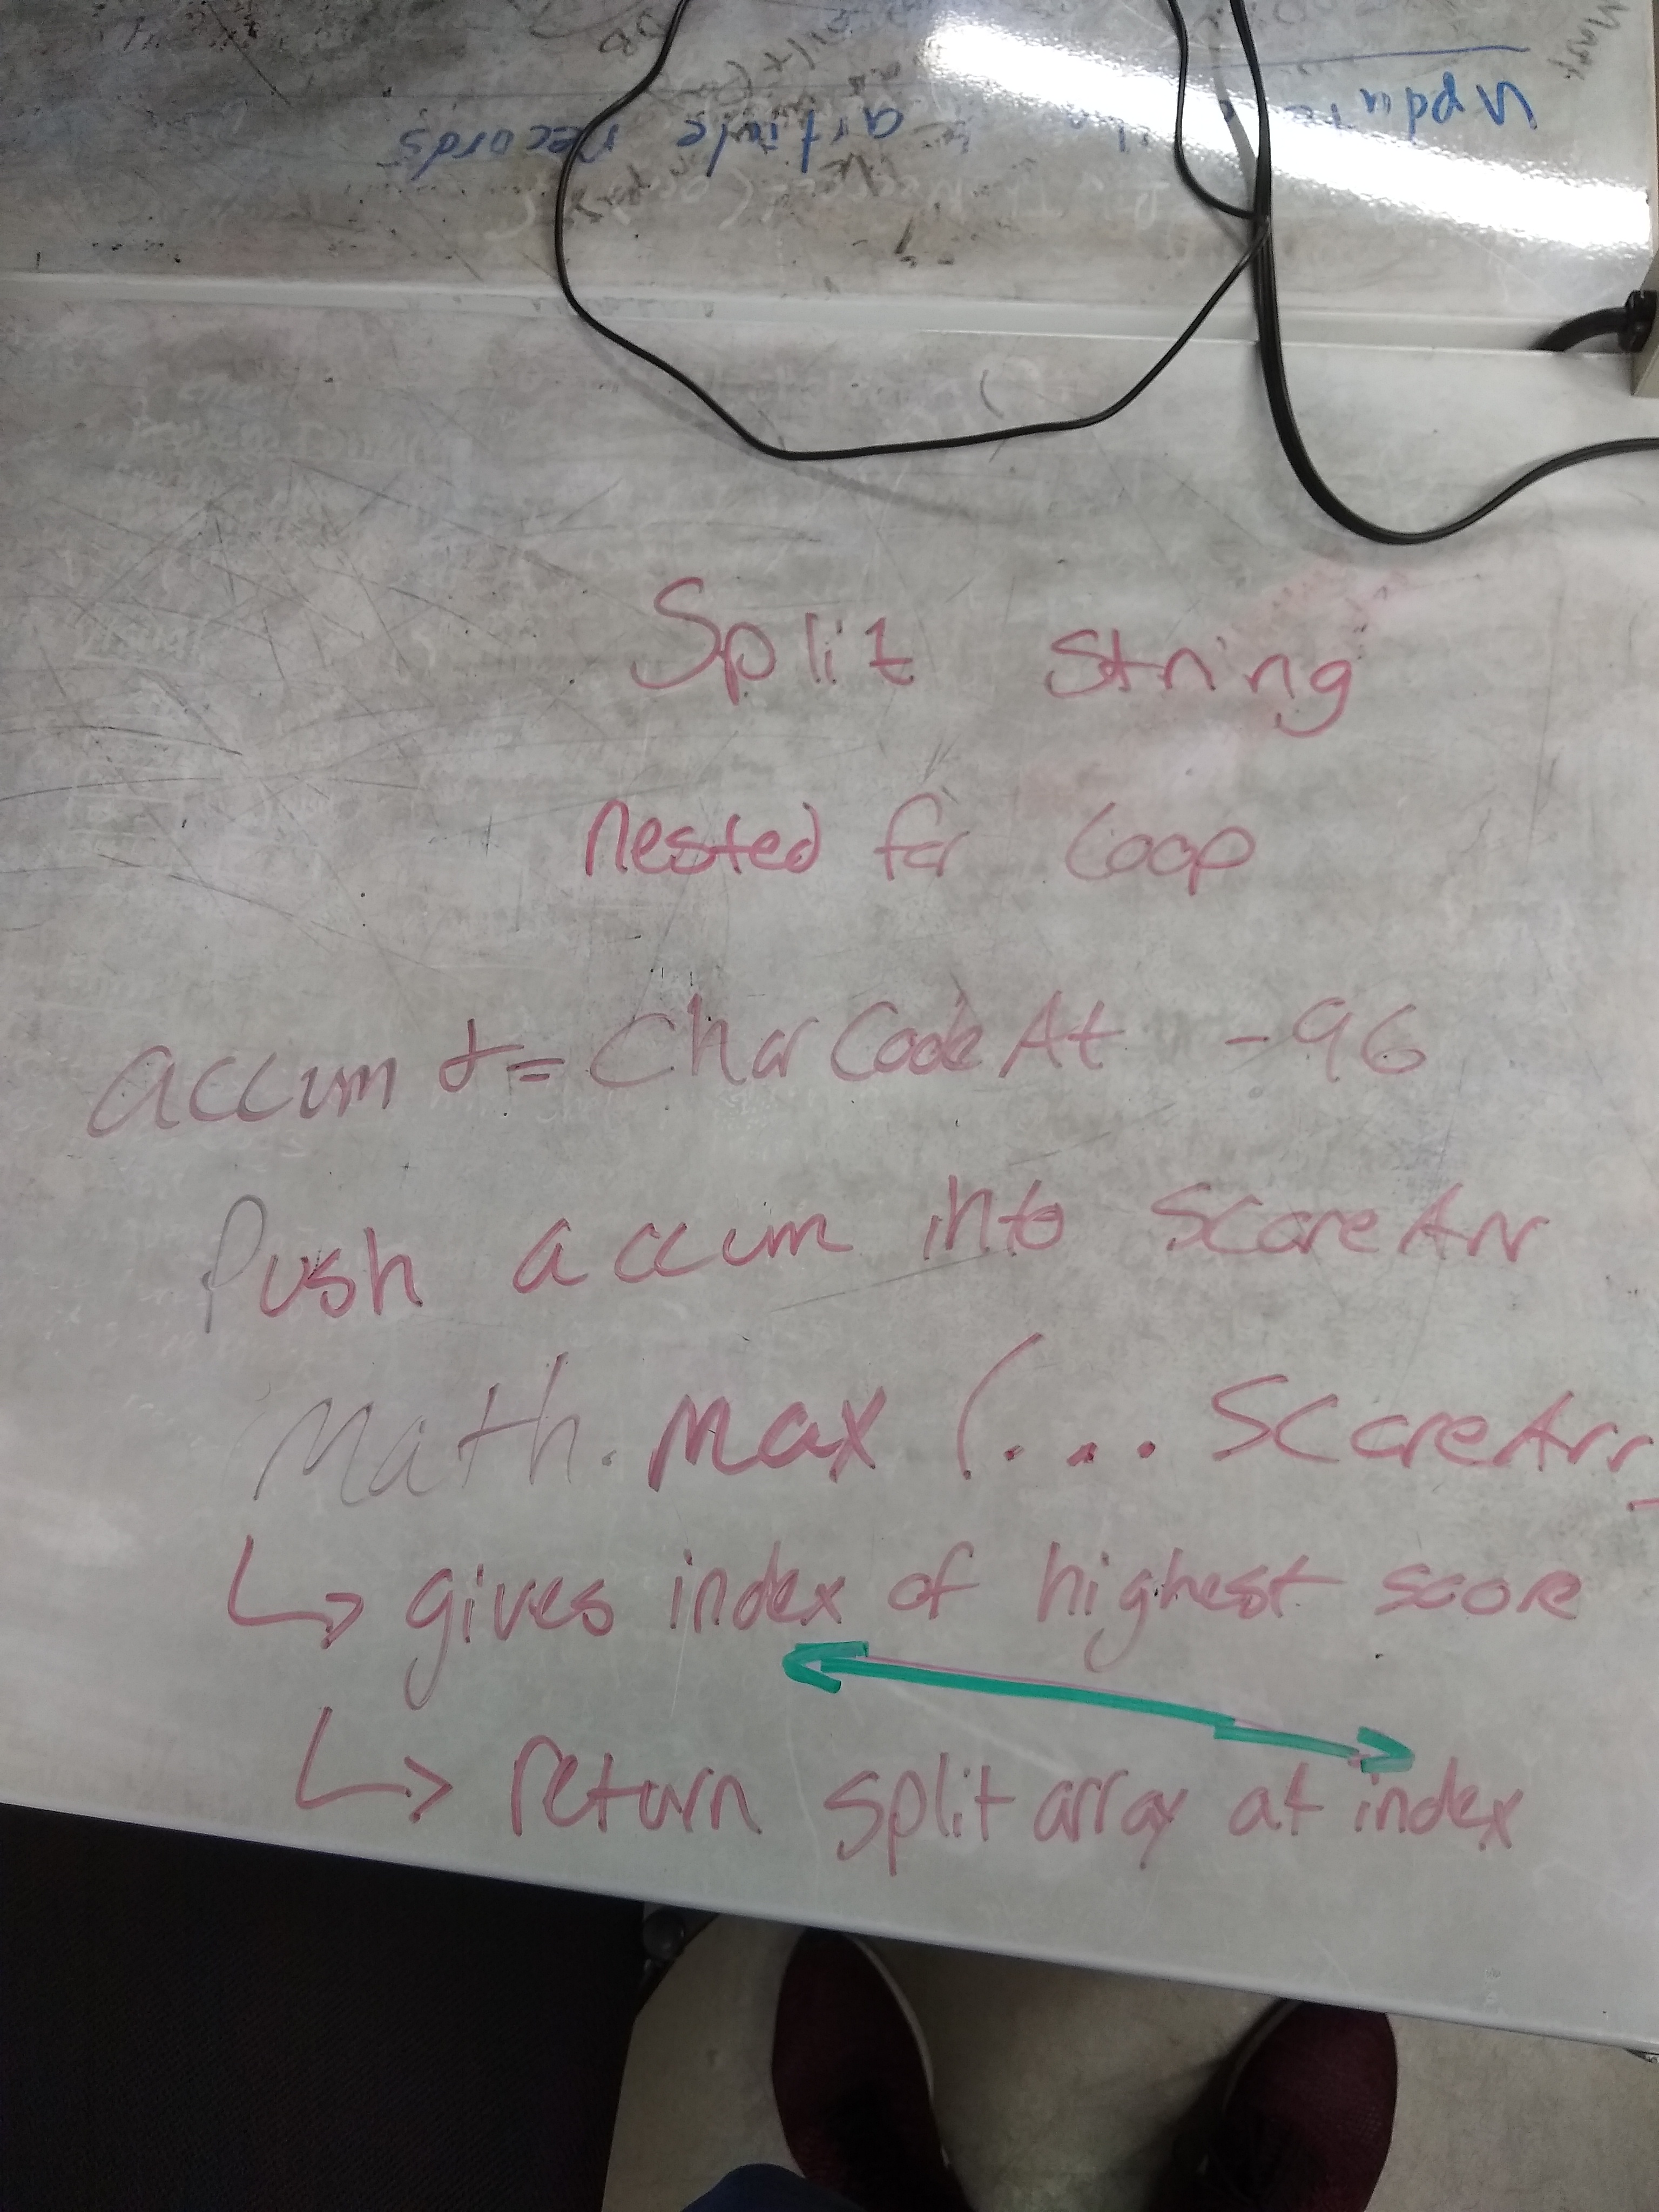 Update article records
Split string
nested for loop
accum += CharCodeAt -96
Push accum into ScoreArr
Math.max (... ScoreArr
↳ gives index of highest score
↳ return split array at index